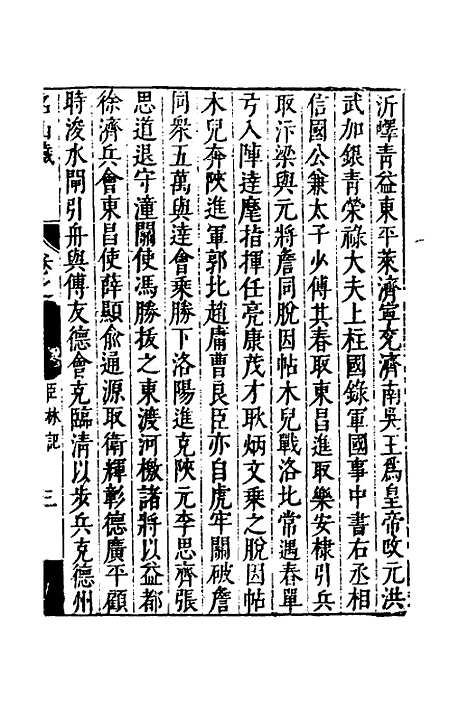 沂嶧青益東平萊濟寧兗濟南吳王爲皇帝改元洪
武加銀青榮祿大夫上柱國錄軍國事中書右丞相
信國公兼太子少傅其春取東昌進取樂安棣引兵
取汴梁與元將詹同脫因帖木兒戰洛北常遇春單
亐入陣達麾指揮任亮康茂才耿炳文乘之脫因帖
木兒奔陜進軍郭北趙庸曹良臣亦自虎牢關破詹
同衆五萬與達會乘勝下洛陽進克陜元李思齊張
思道退守潼關使馮勝拔之東渡河檄諸將以益都
徐濟兵會東昌使薛顯俞通源取衛輝彰德廣平顧
時浚水閘引舟與傅友德會克臨清以步兵克德州
名山藏
臣林記
三